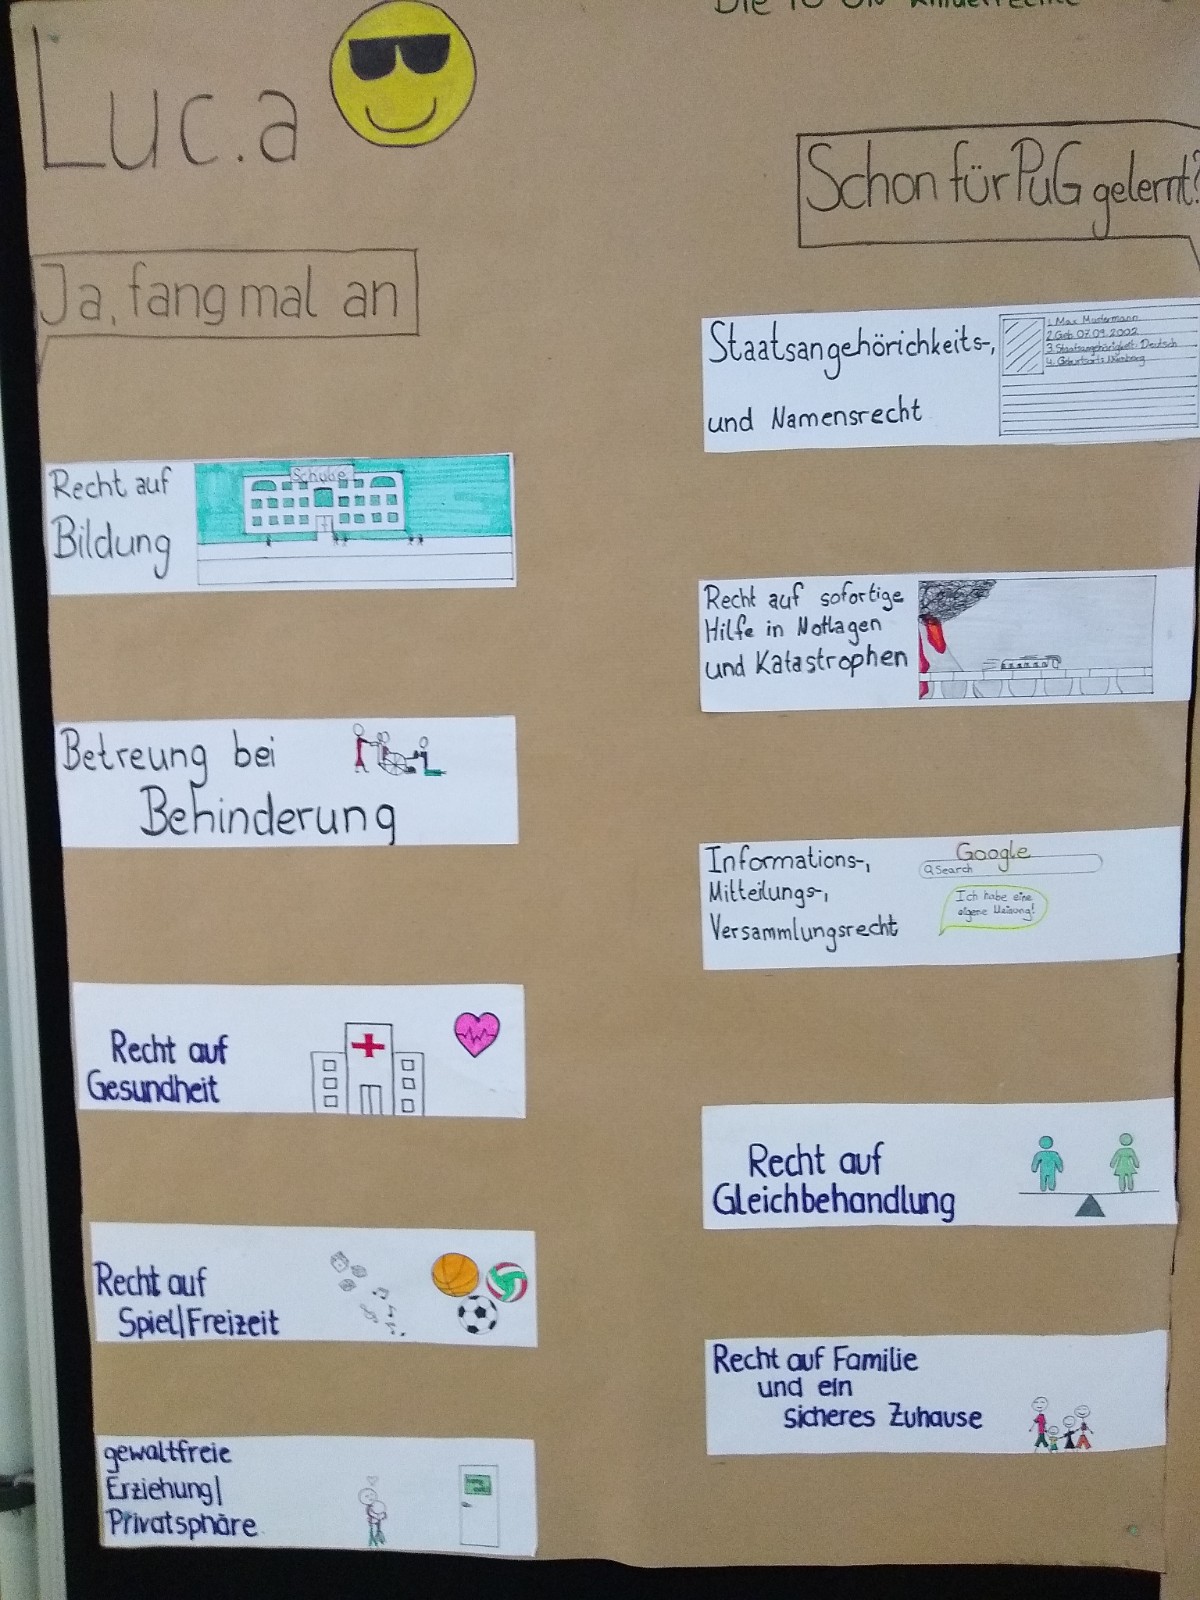 Die 10 UN Kinderrechte
Luc.a
Schon für PuG gelernt?
Ja, fang mal an
Staatsangehörichkeits-,
und Namensrecht
1. Max Mustermann
2. Geb. 07.09.2002
3. Staatsangehörigkeit: Deutsch
4. Geburtsort: Nürnberg
Recht auf
Bildung
Schule
Recht auf sofortige
Hilfe in Notlagen
und Katastrophen
Betreung bei
Behinderung
Informations-,
Mitteilungs-,
Versammlungsrecht
Google
Search
Ich habe eine
eigene Meinung!
Recht auf
Gesundheit
Recht auf
Gleichbehandlung
Recht auf
Spiel/Freizeit
Recht auf Familie
und ein
sicheres Zuhause
gewaltfreie
Erziehung/
Privatsphäre